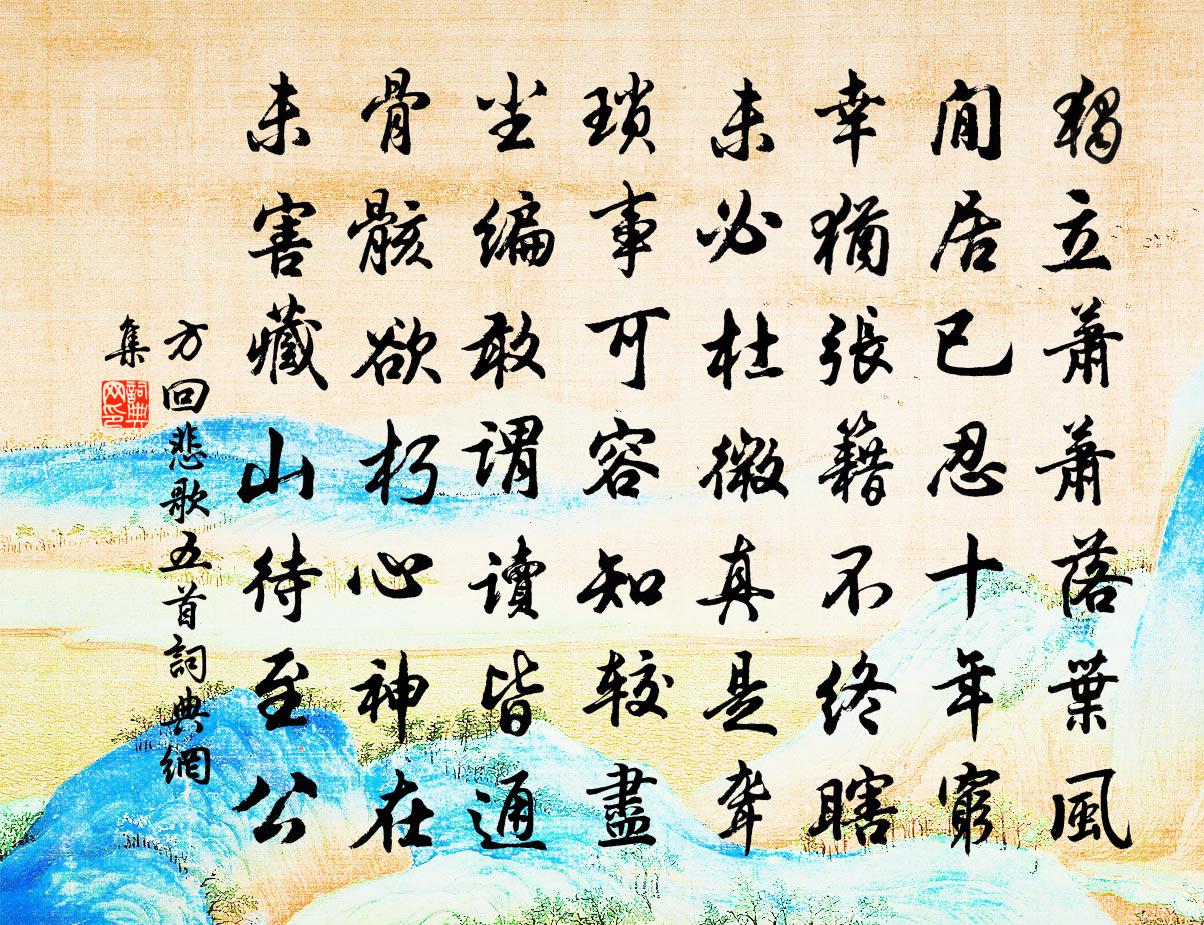 獨立蕭蕭落葉風
閒居已忍十年窮
幸猶張籍不終瞎
未必杜微真是聾
瑣事可容知較盡
塵編敢謂讀皆通
骨骸欲朽心神在
未害藏山待至公
方回悲歌五首詞典網
集
詞典網印